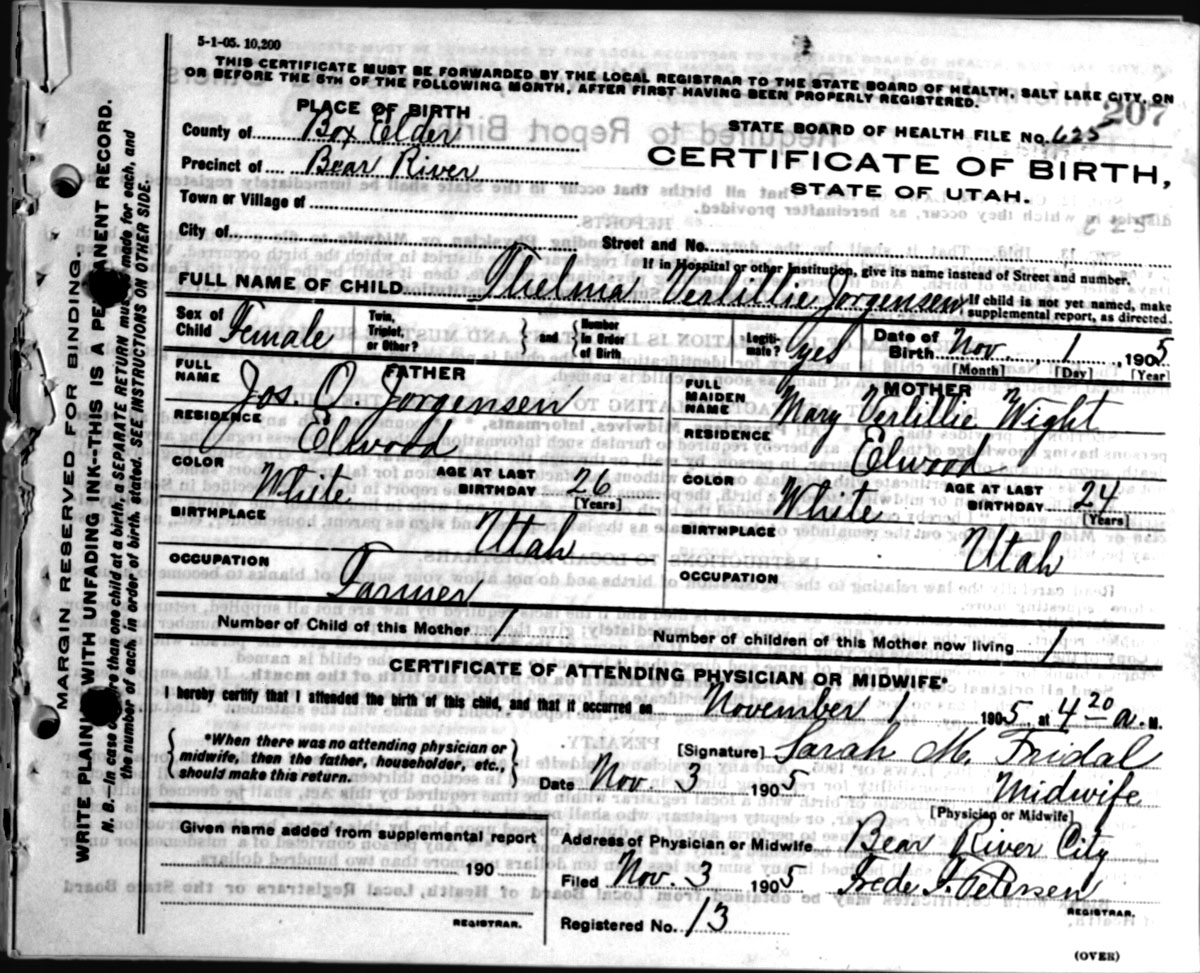 5-1-05. 10,200
THIS CERTIFICATE MUST BE FORWARDED BY THE LOCAL REGISTRAR TO THE STATE BOARD OF HEALTH, SALT LAKE CITY, ON
OR BEFORE THE 5TH OF THE FOLLOWING MONTH, AFTER FIRST HAVING BEEN PROPERLY REGISTERED.
207
PLACE OF BIRTH
STATE BOARD OF HEALTH FILE No. 625
County of Box Elder
CERTIFICATE OF BIRTH,
Precinct of Bear River
STATE OF UTAH.
Town or Village of
625
City of Street and No.
If in Hospital or other Institution, give its name instead of Street and number.
FULL NAME OF CHILD Thelma Verlillie Jorgensen
If child is not yet named, make supplemental report, as directed.
Sex of Child Female Twin, Triplet, or Other? and Number in Order of Birth Legitimate? yes Date of Birth Nov. 1, 1905
[Month] [Day] [Year]
FATHER
FULL NAME Jos O Jorgensen
MOTHER
FULL MAIDEN NAME Mary Verlillie Wight
RESIDENCE Elwood
RESIDENCE Elwood
COLOR White AGE AT LAST BIRTHDAY 26 [Years]
COLOR White AGE AT LAST BIRTHDAY 24 [Years]
BIRTHPLACE Utah
BIRTHPLACE Utah
OCCUPATION Farmer
OCCUPATION
Number of Child of this Mother 1 Number of children of this Mother now living 1
CERTIFICATE OF ATTENDING PHYSICIAN OR MIDWIFE*
I hereby certify that I attended the birth of this child, and that it occurred on November 1 1905, at 4 20 a. M.
*When there was no attending physician or
midwife, then the father, householder, etc.,
should make this return.
[Signature] Sarah M. Fridal
Date Nov. 3 1905 Midwife
[Physician or Midwife]
Given name added from supplemental report
190
REGISTRAR.
Address of Physician or Midwife Bear River City
Filed Nov. 3 1905 Frede F. Petersen
REGISTRAR.
Registered No. 13
(OVER)
MARGIN RESERVED FOR BINDING.
WRITE PLAINLY WITH UNFADING INK--THIS IS A PERMANENT RECORD.
N. B.--In case of more than one child at a birth, a SEPARATE RETURN must be made for each, and
the number of each, in order of birth, stated. SEE INSTRUCTIONS ON OTHER SIDE.